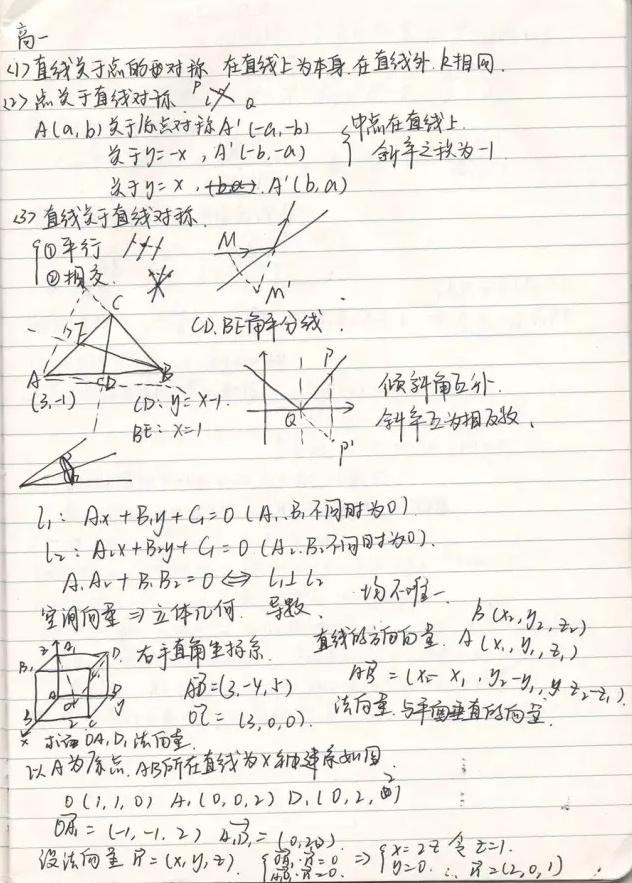 高一
(1) 直线关于点的对称 在直线上为本身.在直线外.k相同.
(2) 点关于直线对称. P Q
A(a,b)关于原点对称A'(-a,-b)
关于y=-x,A'(-b,-a)
关于y=x, A'(b,a)
{中点在直线上.
斜率之积为-1
(3) 直线关于直线对称.
{①平行
②相交.
M
M'
C
E
A
D
B
(3,-1)
CD.BE角平分线.
CD:y=x-1.
BE:x=1
P
Q
P'
倾斜角互补.
斜率互为相反数.
l₁: A₁x+B₁y+C₁=0 (A₁.B₁不同时为0)
l₂: A₂x+B₂y+C₂=0 (A₂.B₂不同时为0).
A₁A₂+B₁B₂=0⇔l₁⊥l₂
空间向量⇒立体几何. 导数. 均不唯一
右手直角坐标系.
AB=(3,-4,5)
OC=(3,0,0).
直线的方向向量. A(x₁,y₁,z₁) B(x₂,y₂,z₂)
AB=(x₂-x₁,y₂-y₁,z₂-z₁)
法向量.与平面垂直的向量.
求证OA₁D₁法向量.
以A为原点.AB所在直线为x轴建系如图
O(1,1,0) A₁(0,0,2) D₁(0,2,2)
OA₁=(-1,-1,2) A₁D₁=(0,2,0)
设法向量n=(x,y,z). {OA₁·n=0 A₁D₁·n=0. ⇒{x=2z y=0. 令z=1. ∴n=(2,0,1)